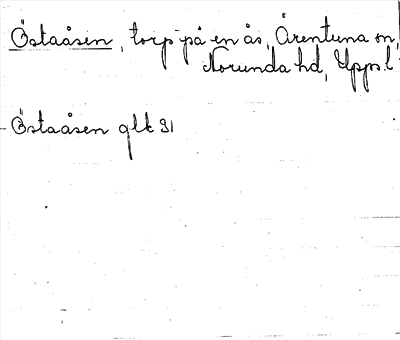 Östaåsen, torp på en ås, Ärentuna sn,
Norunda hd, Upps. l.
Östaåsen glk 31